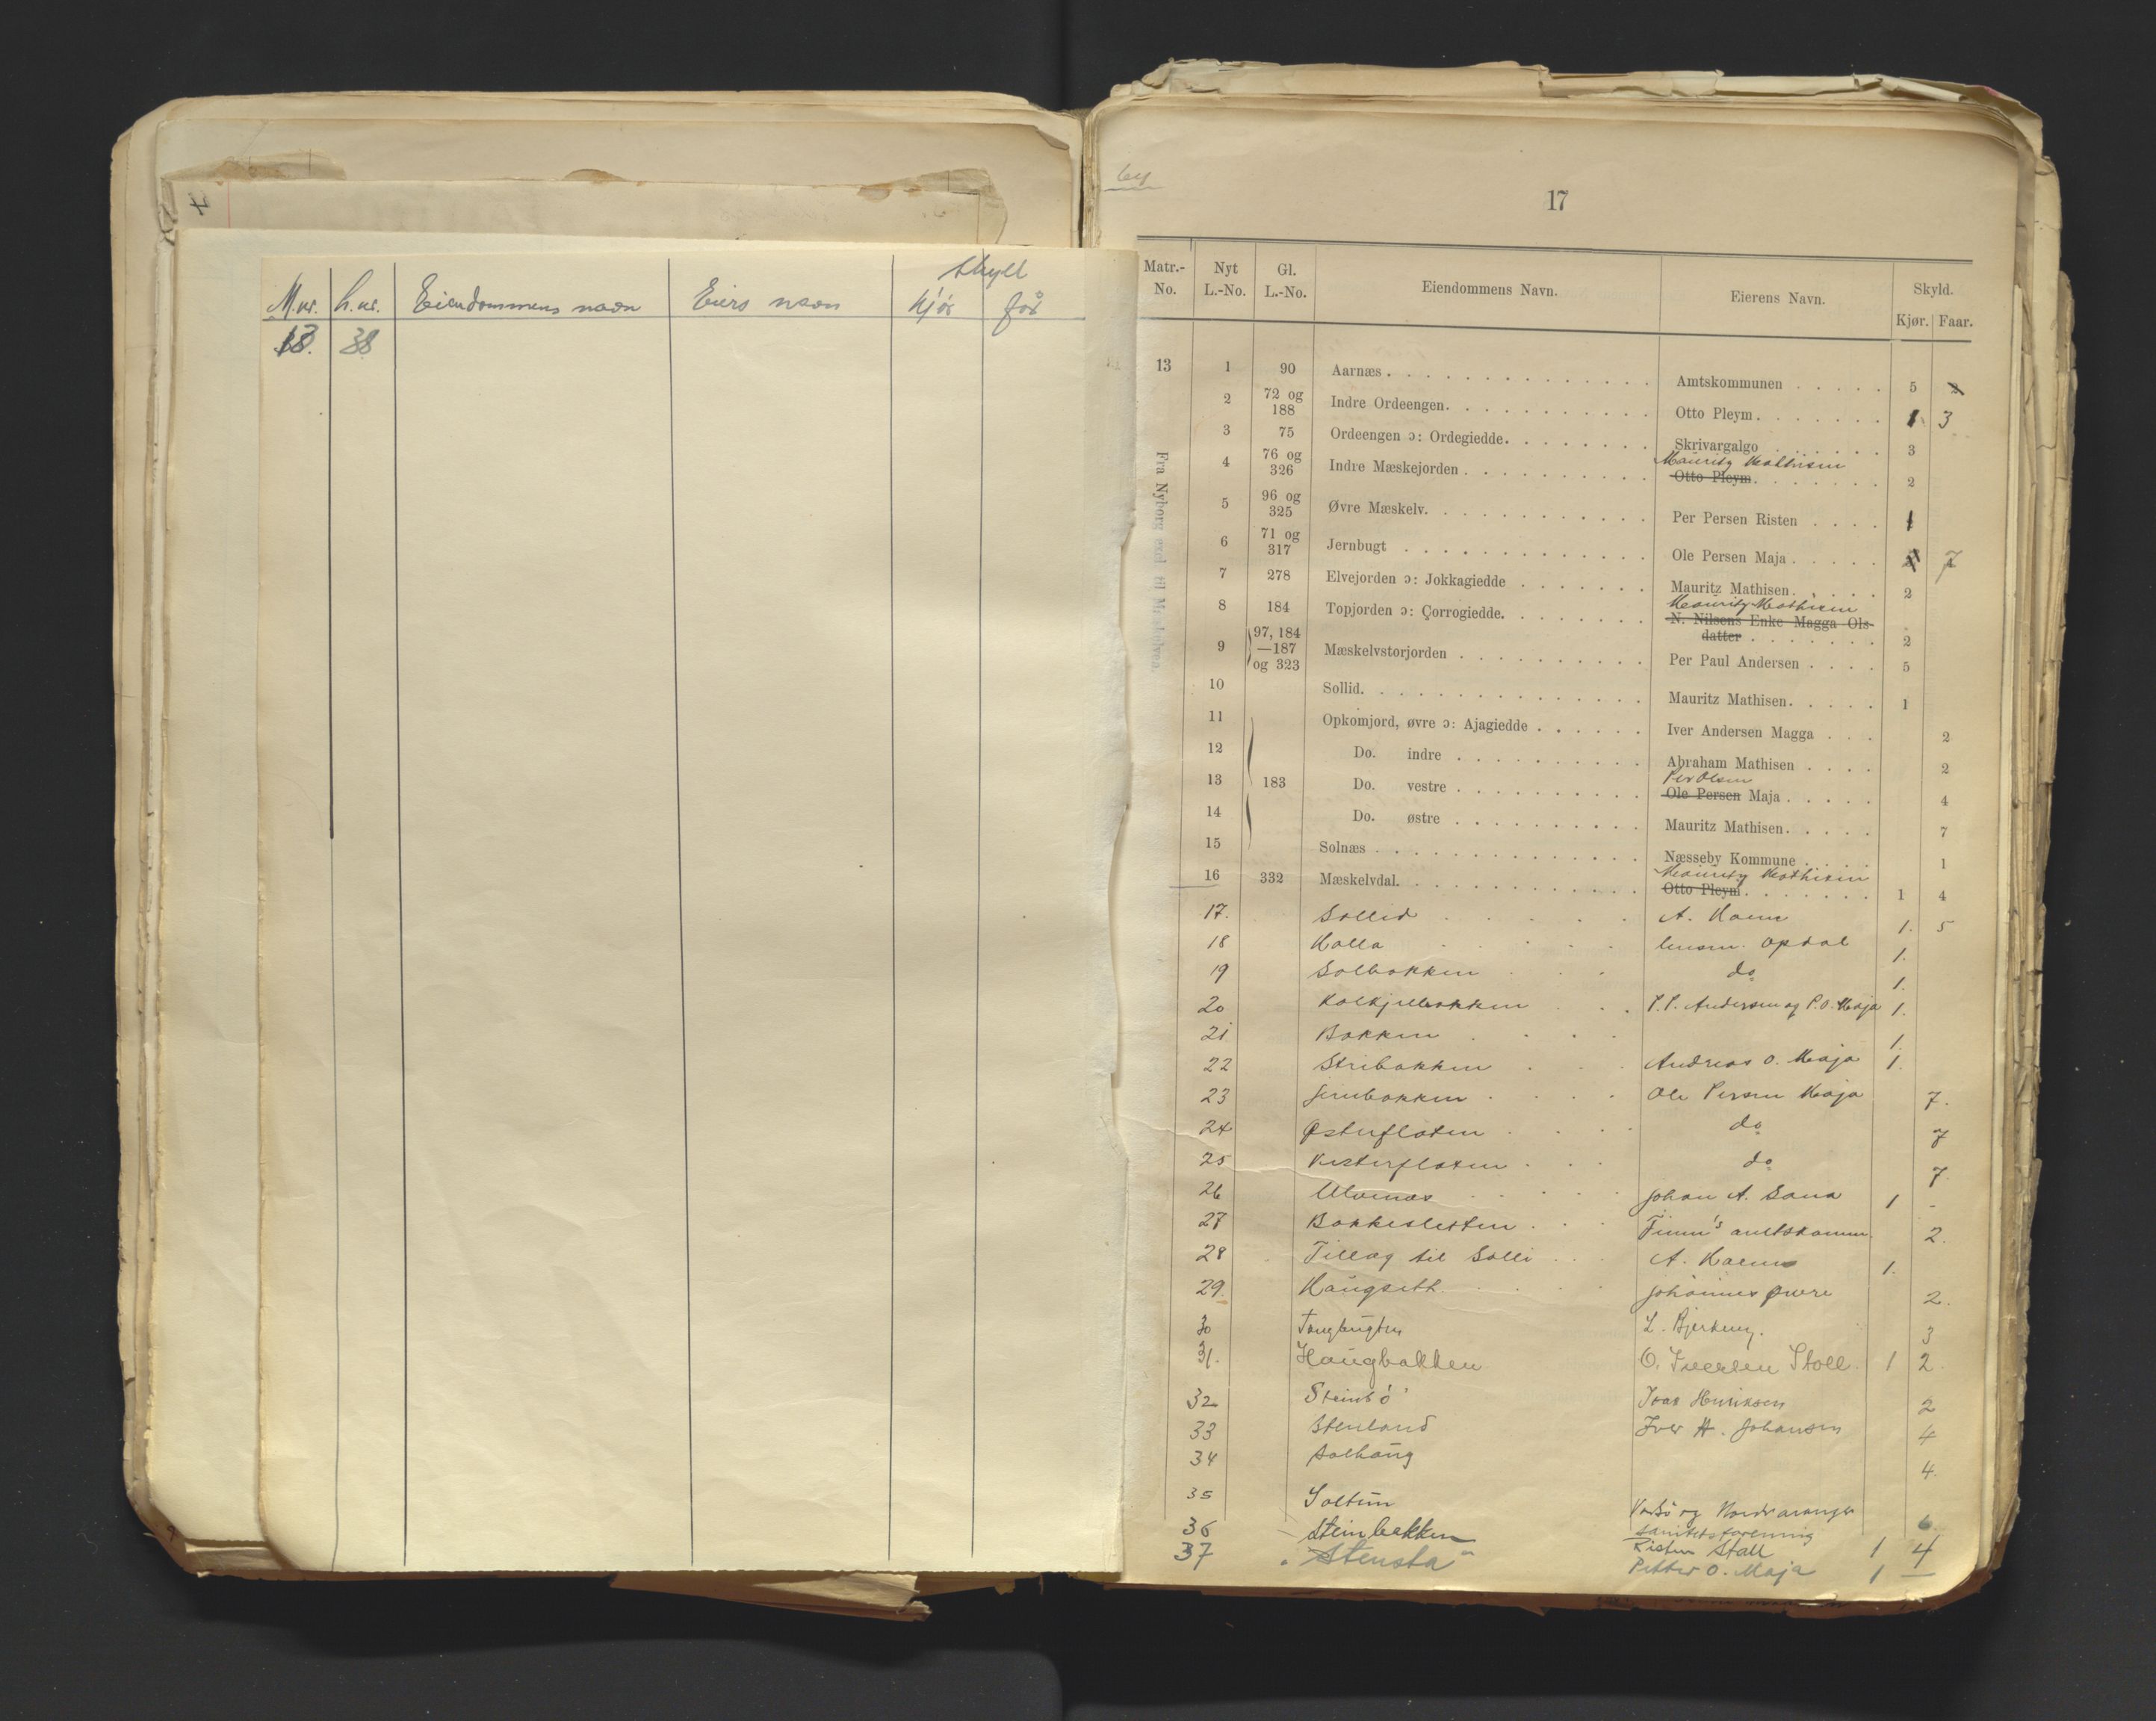 Skyld
M.nr. L.nr. Eiendommens navn Eiers navn kjør får
13. 38
64
17
Matr.-No. Nyt L.-No. Gl. L.-No. Eiendommens Navn. Eierens Navn. Skyld.
Kjør. Faar.
Fra Nyborg excl. til Mæskelven.
13 1 90 Aarnæs Amtskommunen 5 2
2 72 og 188 Indre Ordeengen Otto Pleym 1 3
3 75 Ordeengen ɔ: Ordegiedde Skrivargalgo 3
4 76 og 326 Indre Mæskejorden Mauritz Mathisen Otto Pleym 2
5 96 og 325 Øvre Mæskelv Per Persen Risten 1
6 71 og 317 Jernbugt Ole Persen Maja 7
7 278 Elvejorden ɔ: Jokkagiedde Mauritz Mathisen 2
8 184 Topjorden ɔ: Çorrogiedde Mauritz Mathisen N. Nilsens Enke Magga Ols-
datter 2
9 97, 184—187 og 323 Mæskelvstorjorden Per Paul Andersen 5
10 Sollid Mauritz Mathisen 1
11 Opkomjord, øvre ɔ: Ajagiedde Iver Andersen Magga 2
12 Do. indre Abraham Mathisen 2
13 183 Do. vestre Per Olsen Ole Persen Maja 4
14 Do. østre Mauritz Mathisen 7
15 Solnæs Næsseby Kommune 1
16 332 Mæskelvdal Mauritz Mathisen Otto Pleym 1 4
17. Sollid A. 1. 5
18 lensm. Opdal 1.
19 Solbakken do 1.
20 P.P. Andersen og P.O. Maja 1.
21 Bakken 1.
22 Stribakken Andreas O. Maja 1.
23 Jernbakken Ole Persen Maja 7.
24 Østerfloten do 7
25 Vesterfloten do 7.
26 Johan A. Sana 1 -
27 Bakkesletten Finm's amtskomm. 2.
28 Tillæg til Solli A. 1.
29. Haugseth Johannes Øvere 2.
30 Tangbugten L. Bjerkeng. 3
31. Haugbakken O. Iversen Stoll 1 2
32 Steinbö Isak Henriksen 2
33 Stenland Iver H. Johansen 4
34 Solhaug 4.
35 Soltun Vadsö og Nordvaranger
sanitetsforening 6
36 Steinbekken Risten Stall 1 4
37 "Stensta" Petter O. Maja 1 —